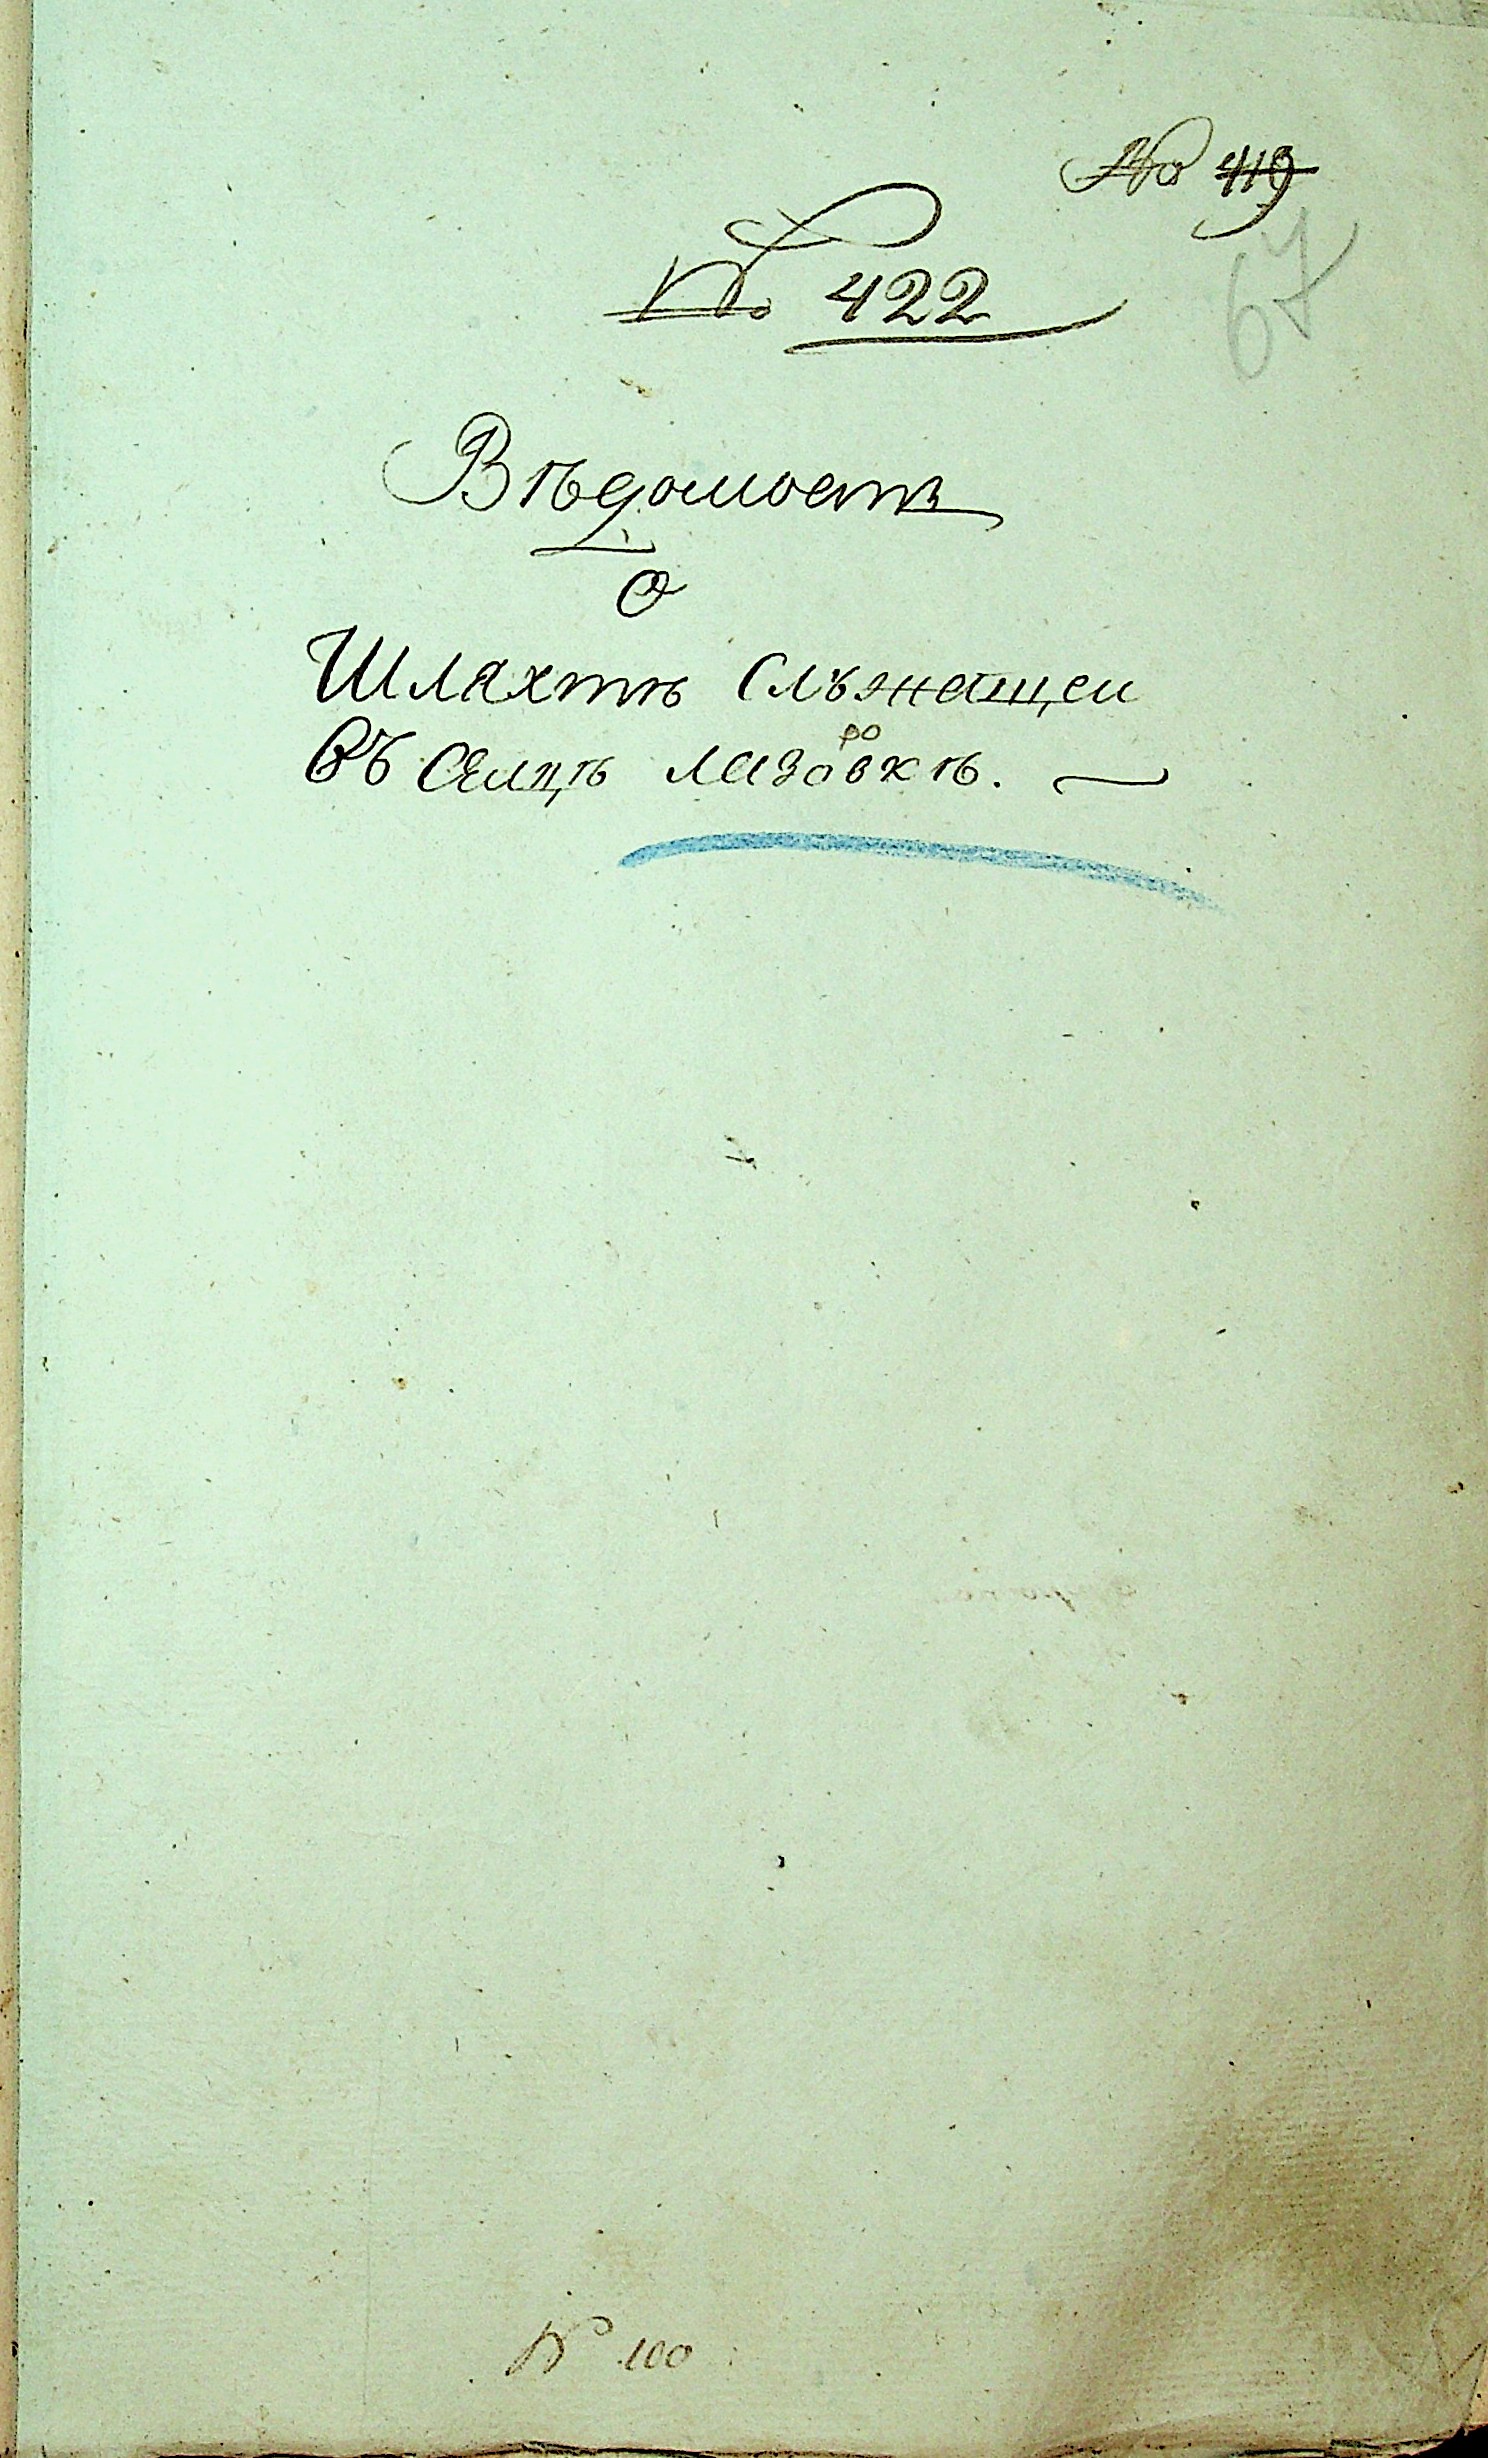 № 419
№ 422
67
Вѣдомость
О
Шляхтѣ Слѣжащеи
ро
въ Селцѣ лазовкѣ.
№ 100